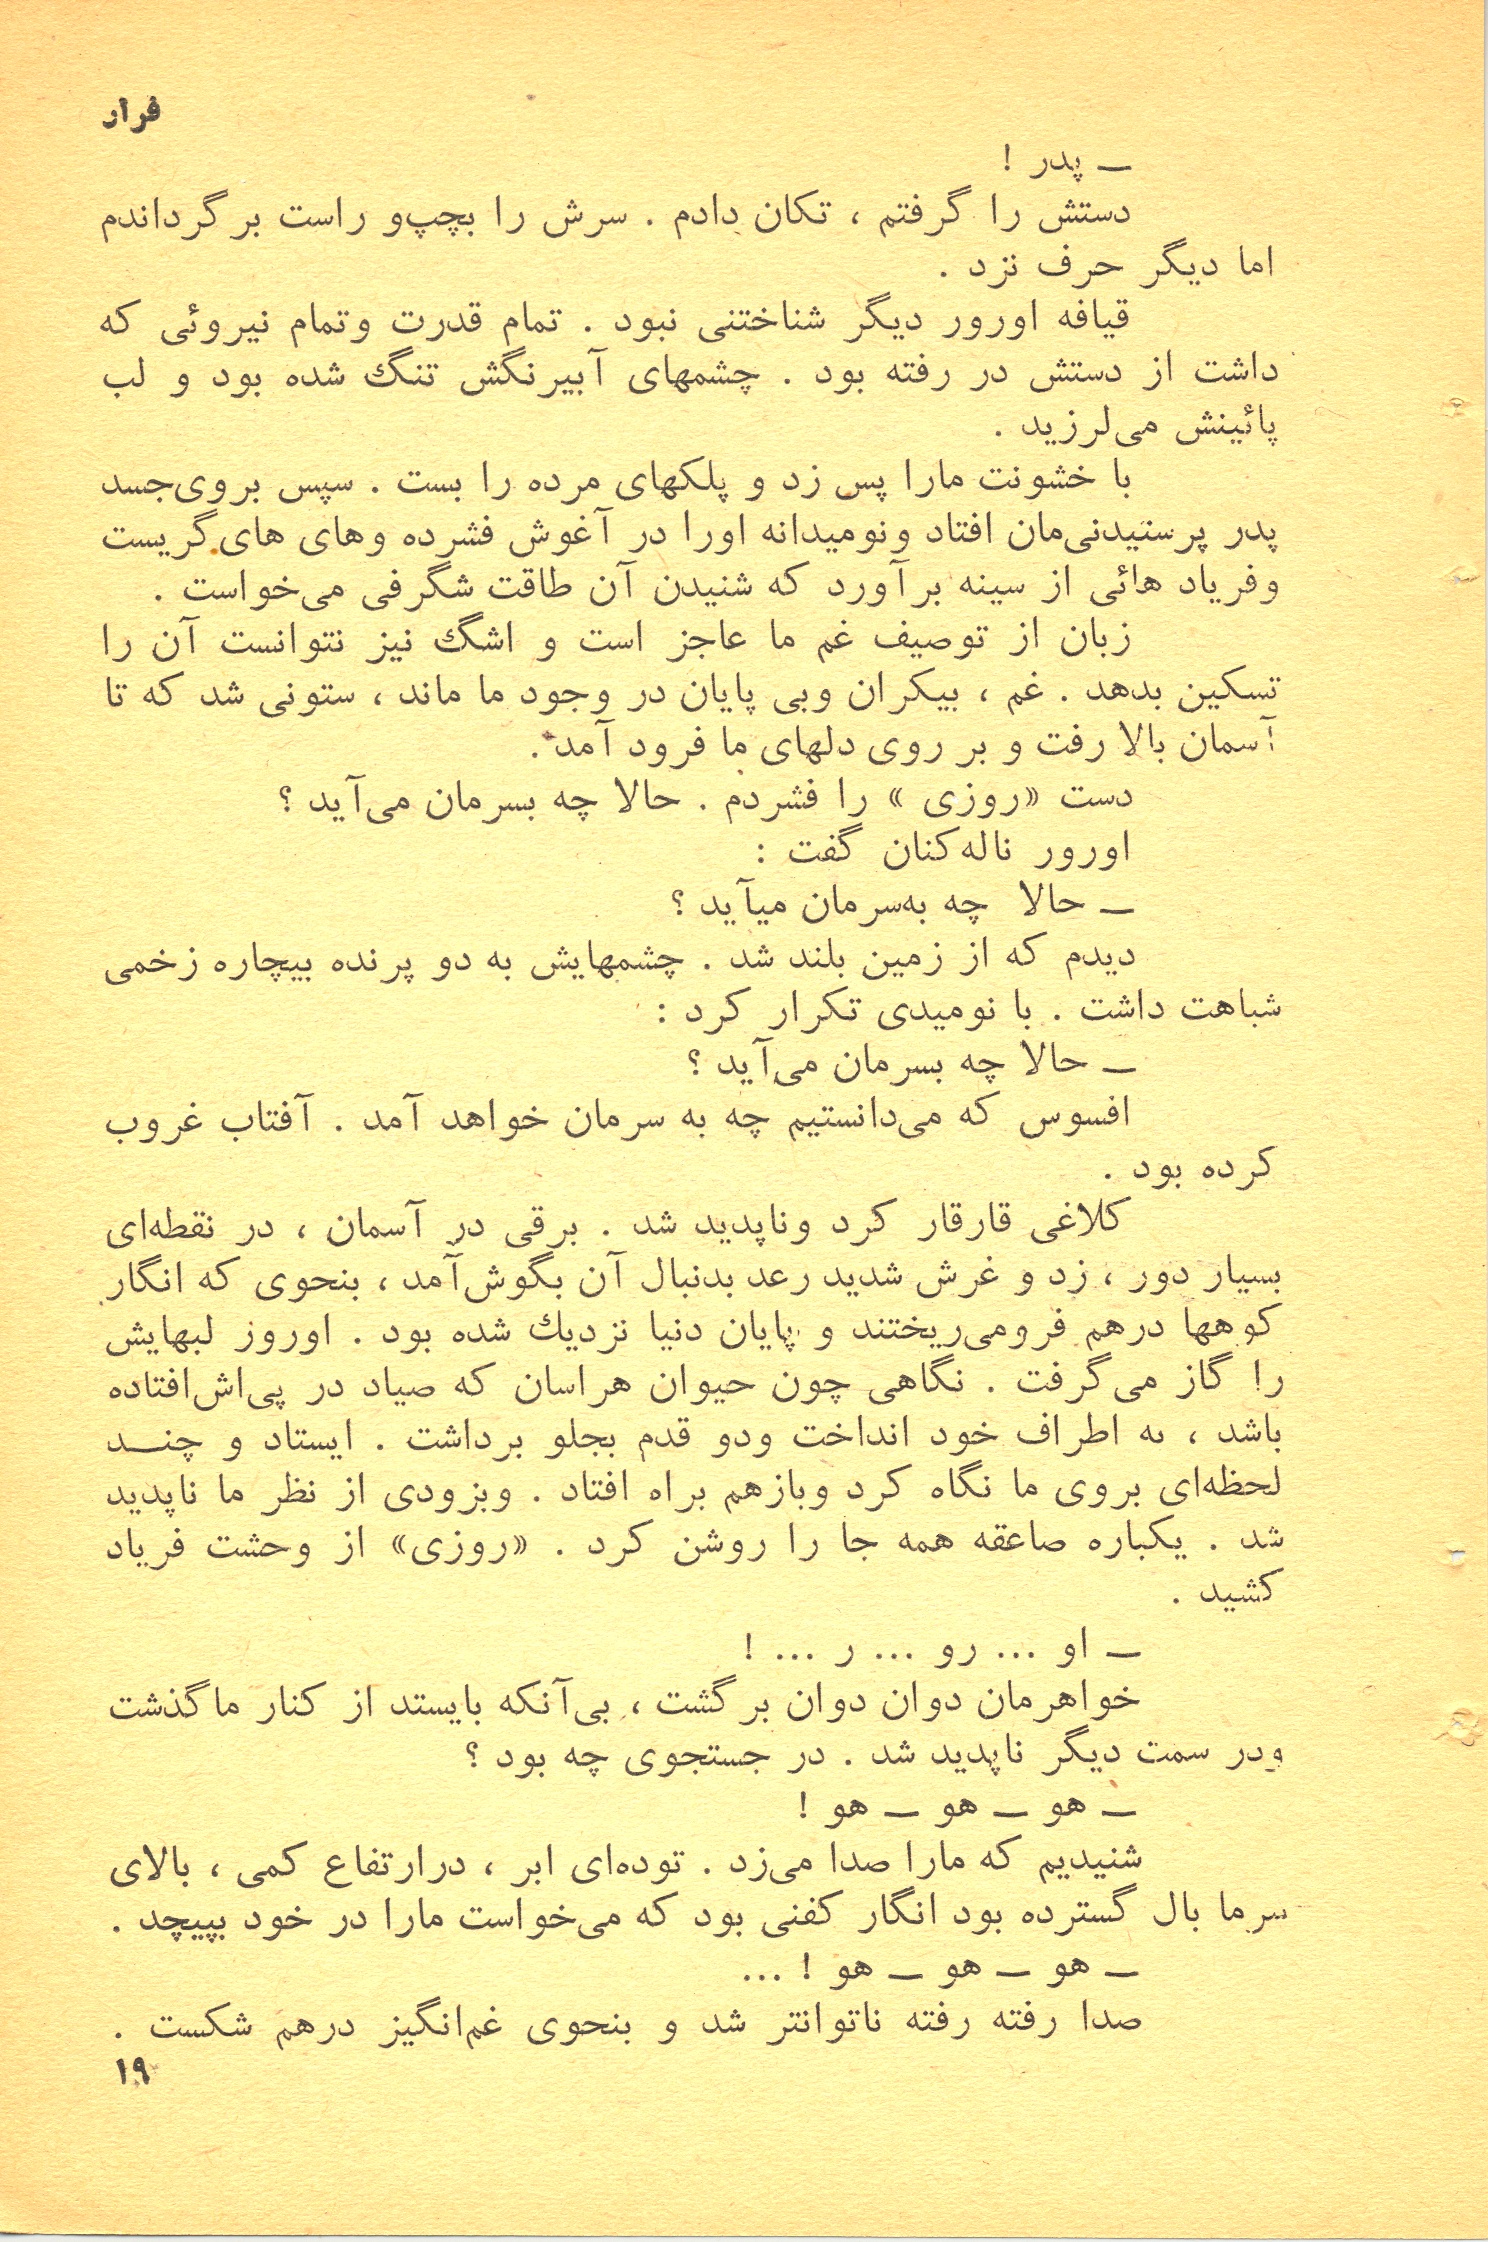 فرار
ـ پدر !
دستش را گرفتم ، تکان دادم . سرش را بچپ‌و راست برگرداندم
اما دیگر حرف نزد .
قیافه اورور دیگر شناختنی نبود . تمام قدرت وتمام نیروئی که
داشت از دستش در رفته بود . چشمهای آبیرنگش تنگ شده بود و لب
پائینش می‌لرزید .
با خشونت مارا پس زد و پلکهای مرده را بست . سپس بروی‌جسد
پدر پرستیدنی‌مان افتاد ونومیدانه اورا در آغوش فشرده وهای های‌گریست
وفریاد هائی از سینه برآورد که شنیدن آن طاقت شگرفی می‌خواست .
زبان از توصیف غم ما عاجز است و اشگ نیز نتوانست آن را
تسکین بدهد . غم ، بیکران وبی پایان در وجود ما ماند ، ستونی شد که تا
آسمان بالا رفت و بر روی دلهای ما فرود آمد .
دست «روزی » را فشردم . حالا چه بسرمان می‌آید ؟
اورور ناله‌کنان گفت :
ـ حالا چه به‌سرمان میآید ؟
دیدم که از زمین بلند شد . چشمهایش به دو پرنده بیچاره زخمی
شباهت داشت . با نومیدی تکرار کرد :
ـ حالا چه بسرمان می‌آید ؟
افسوس که می‌دانستیم چه به سرمان خواهد آمد . آفتاب غروب
کرده بود .
کلاغی قارقار کرد وناپدید شد . برقی در آسمان ، در نقطه‌ای
بسیار دور ، زد و غرش شدید رعد بدنبال آن بگوش‌آمد ، بنحوی که انگار
کوهها درهم فرومی‌ریختند و پایان دنیا نزدیك شده بود . اوروز لبهایش
را گاز می‌گرفت . نگاهی چون حیوان هراسان که صیاد در پی‌اش‌افتاده
باشد ، به اطراف خود انداخت ودو قدم بجلو برداشت . ایستاد و چنـد
لحظه‌ای بروی ما نگاه کرد وبازهم براه افتاد . وبزودی از نظر ما ناپدید
شد . یکباره صاعقه همه جا را روشن کرد . «روزی» از وحشت فریاد
کشید .
ـ او ... رو ... ر ... !
خواهرمان دوان دوان برگشت ، بی‌آنکه بایستد از کنار ماگذشت
ودر سمت دیگر ناپدید شد . در جستجوی چه بود ؟
ـ هو ـ هو ـ هو !
شنیدیم که مارا صدا می‌زد . توده‌ای ابر ، درارتفاع کمی ، بالای
سرما بال گسترده بود انگار کفنی بود که می‌خواست مارا در خود بپیچد .
ـ هو ـ هو ـ هو ! ...
صدا رفته رفته ناتوانتر شد و بنحوی غم‌انگیز درهم شکست .
۱۹